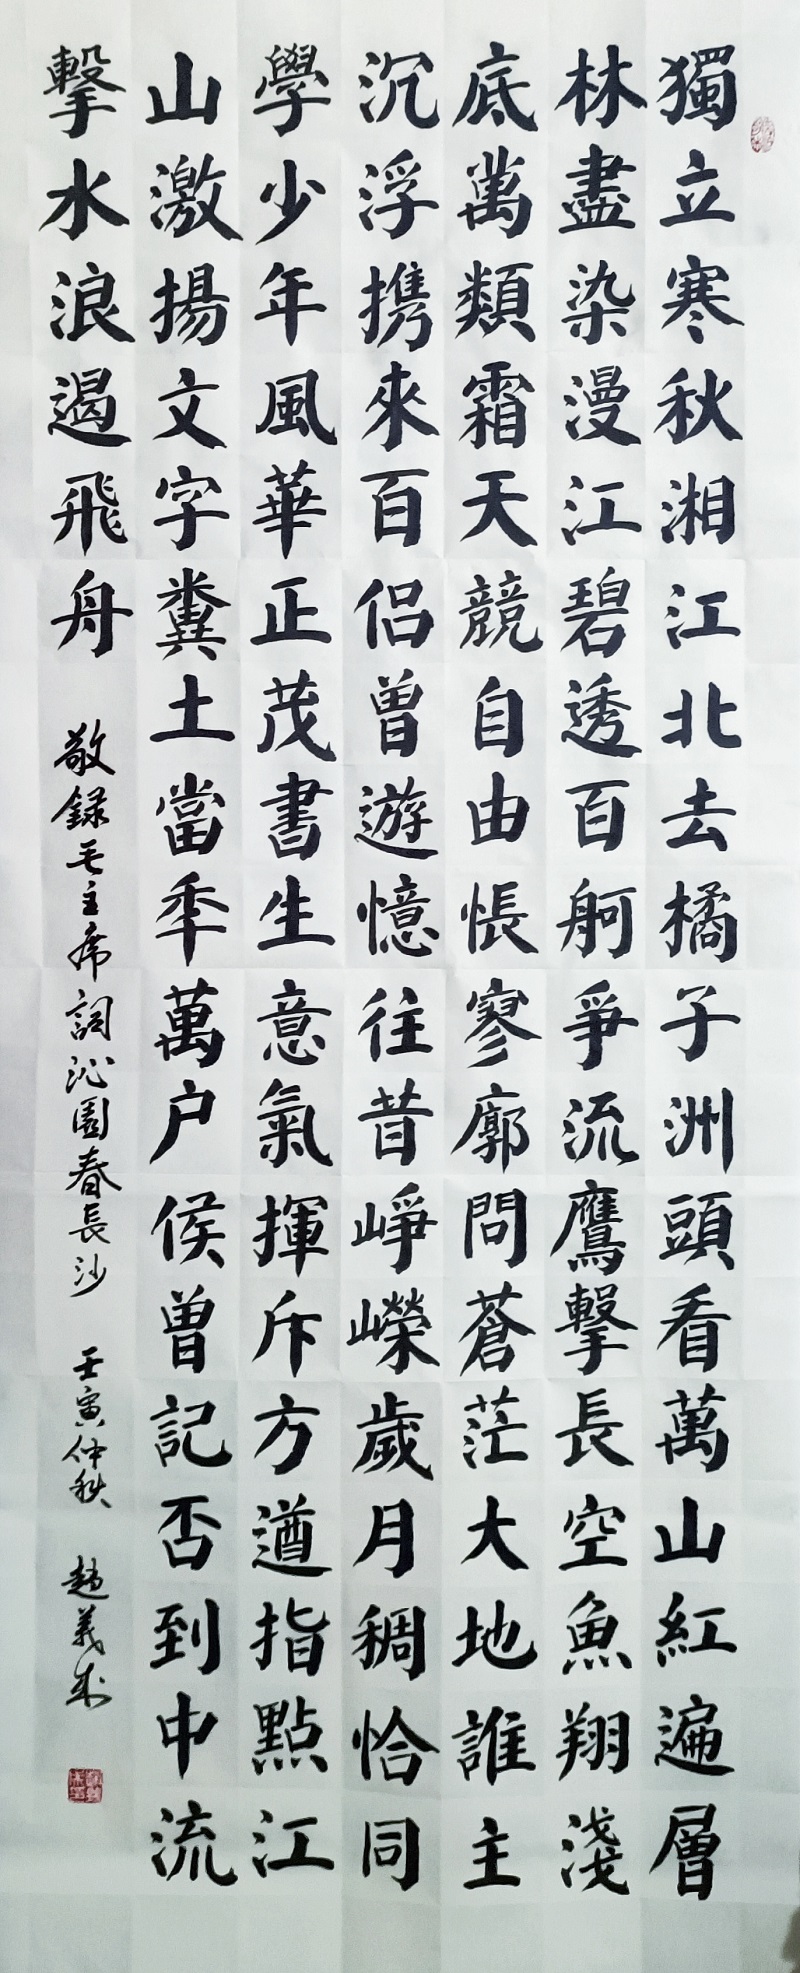 獨立寒秋湘江北去橘子洲頭看萬山紅遍層
林盡染漫江碧透百舸爭流鷹擊長空魚翔淺
底萬類霜天競自由悵寥廓問蒼茫大地誰主
沉浮携來百侣曾遊憶往昔崢嶸歲月稠恰同
學少年風華正茂書生意氣揮斥方遒指點江
山激揚文字糞土當年萬户侯曾記否到中流
擊水浪遏飛舟
敬録毛主席詞沁園春長沙 壬寅仲秋 趙義成